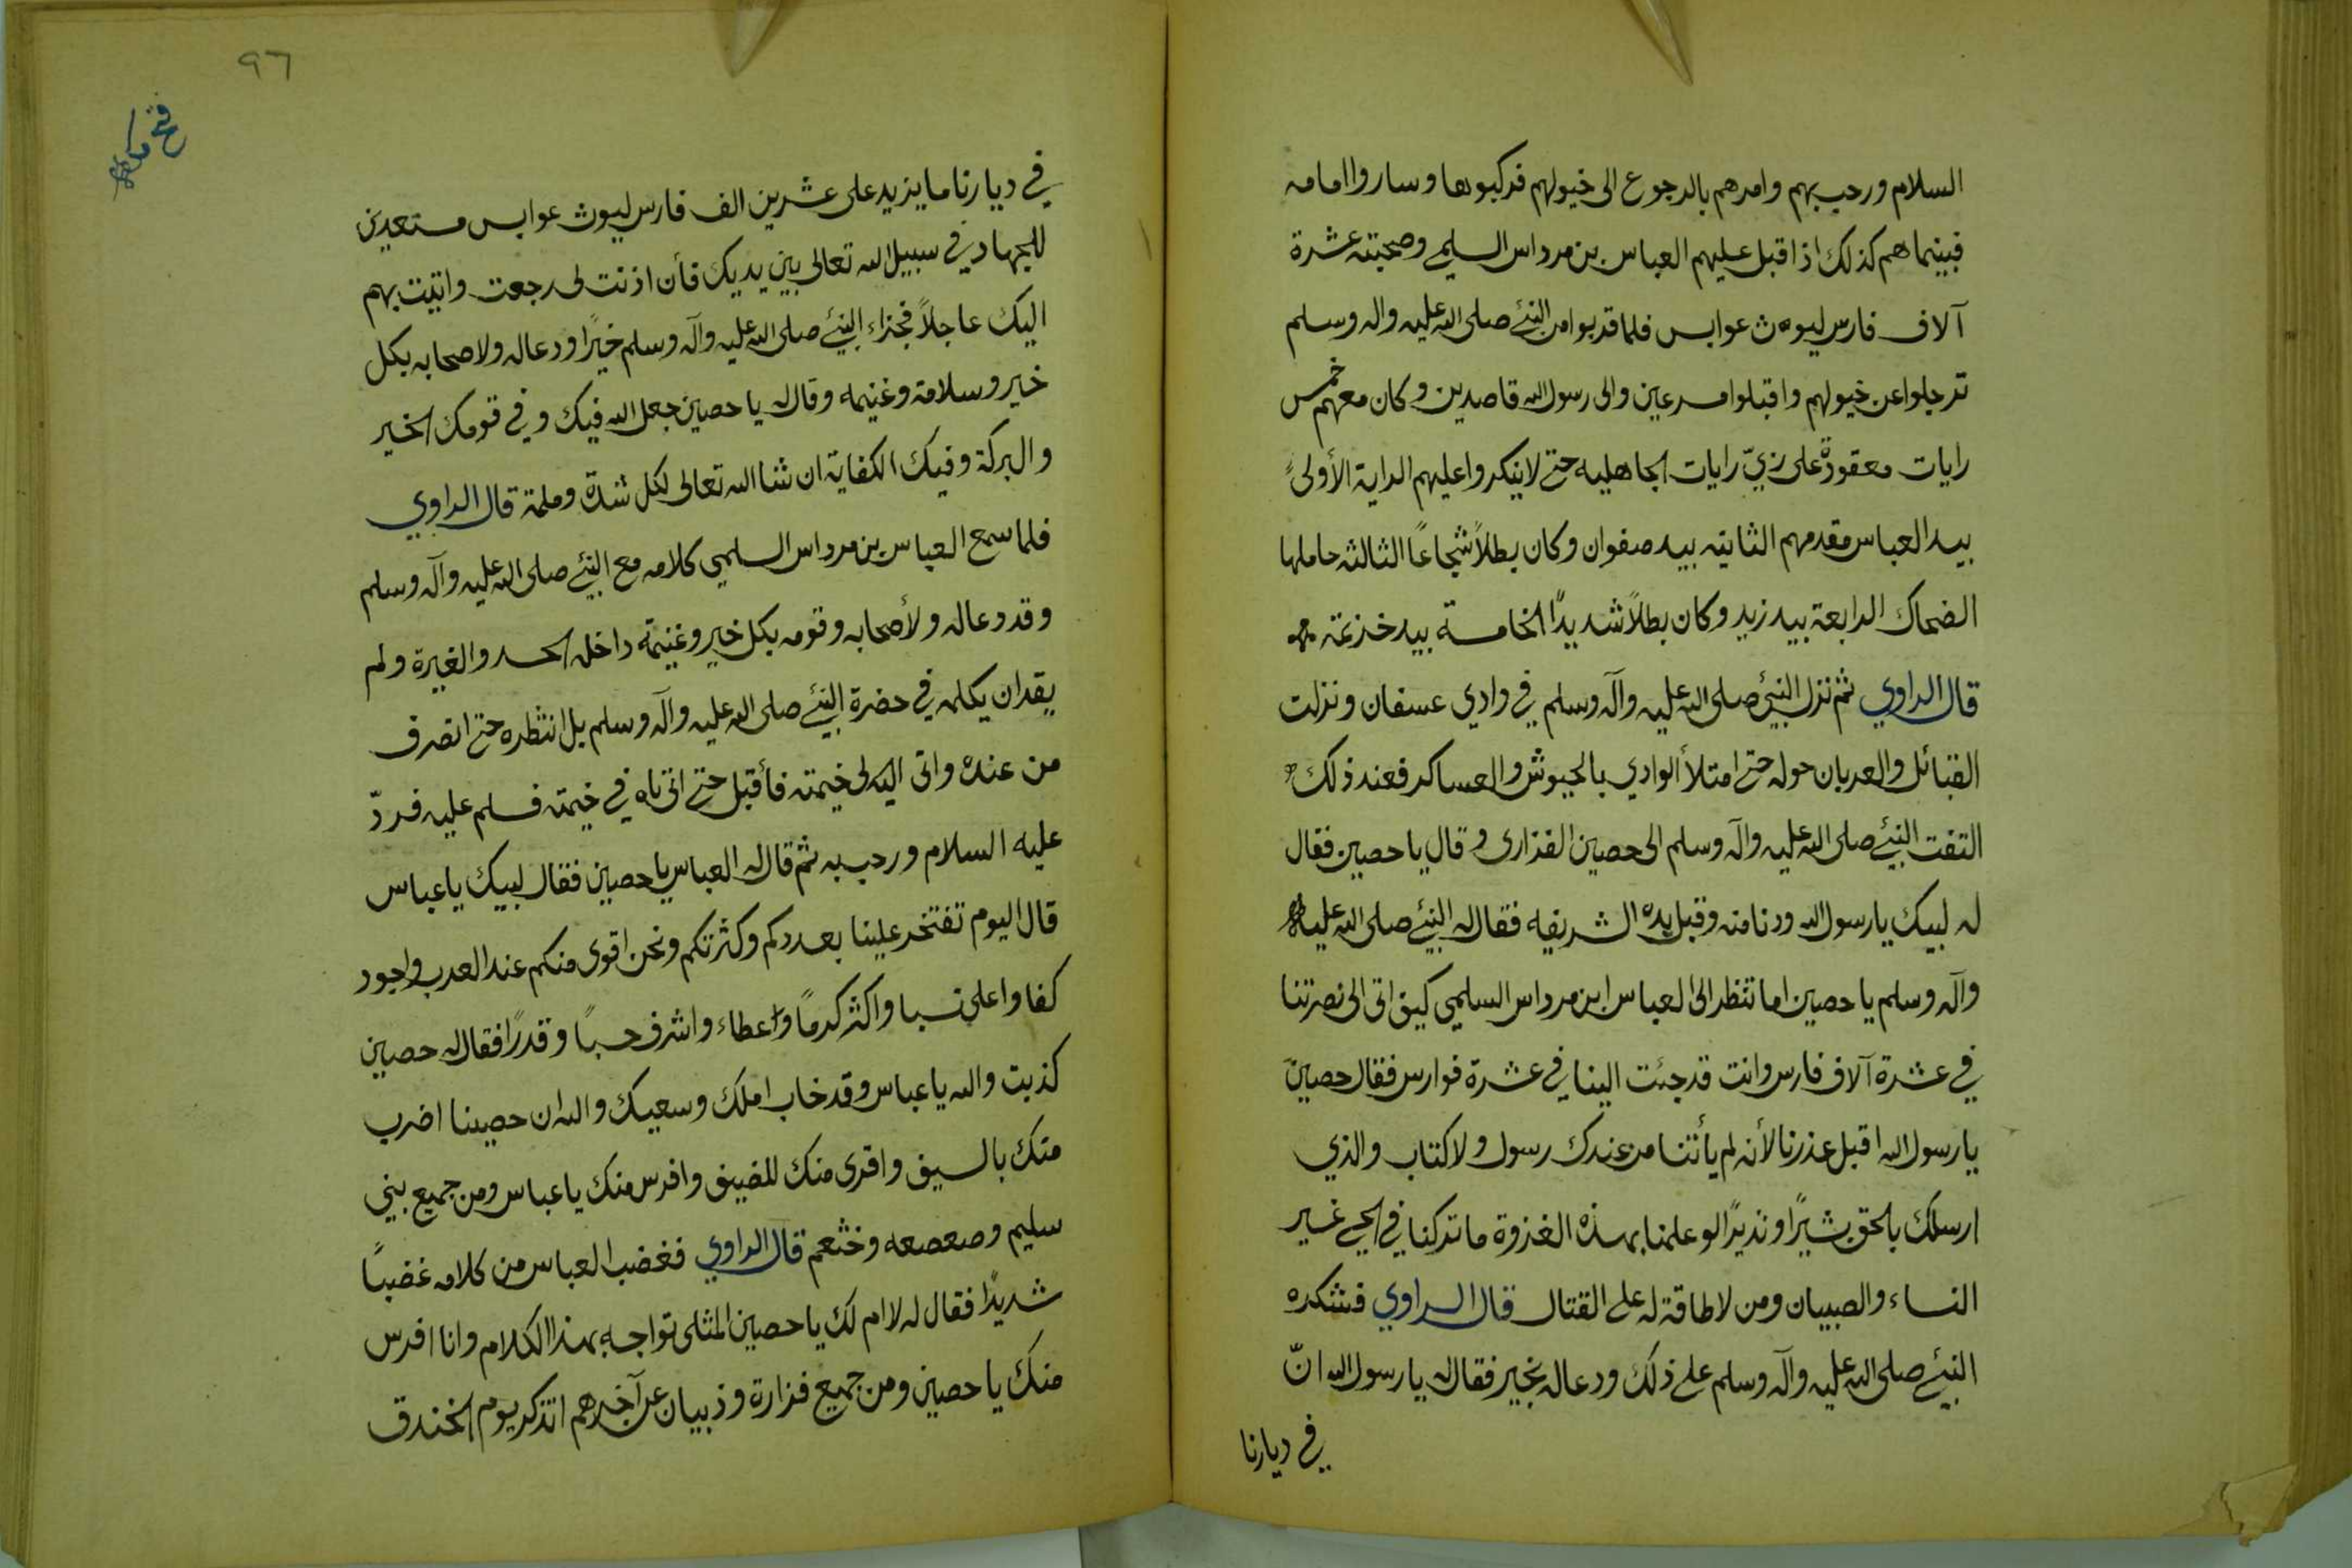 السلام ورحب بهم وامرهم بالرجوع الى خيولهم فركبوها وساروا امامه
فبينما هم كذلك اذا قبل عليهم العباس بن مرداس السلمي وصحبته عشرة
آلاف فارس ليوث عوابس فلما قربوا من النبئ صلى الله عليه واله وسلم
ترجلوا عن خيولهم واقبلوا مسرعين والى رسول الله قاصدين وكان معهم خمس
رايات معقودة على زيّ رايات الجاهليه حتى لا ينكروا عليهم الراية الأولى
بيد العباس مقدمهم الثانيه بيد صفوان وكان بطلاً شجاعاً الثالثه حاملها
الضحاك الرابعة بيد زيد وكان بطلاً شديدًا الخامسة بيد خزعه
قال الراوي ثم نزل النبئ صلى الله عليه وآله وسلم في وادي عسفان ونزلت
القبائل والعربان حوله حتى امتلأ الوادي بالجيوش والعساكر فعند ذلك
التفت النبئ صلى الله عليه وآله وسلم الى حصين الفزارى وقال يا حصين فقال
له لبيك يا رسول الله ودنا منه وقبل يده الشريفه فقال له النبئ صلى الله عليه
وآله وسلم يا حصين اما تنظر الى العباس ابن مرداس السلمي كيف اتى الى نصرتنا
في عشرة آلاف فارس وانت قد جئت الينا في عشرة فوارس فقال حصين
يا رسول الله اقبل عذرنا لأنه لم يأتنا من عندك رسول ولا كتاب والذي
ارسلك بالحق بشيرًا ونذيرًا لو علمنا بهذه الغزوة ما تركنا في الحي غير
النساء والصبيان ومن لا طاقة له على القتال قال الراوي فشكره
النبئ صلى الله عليه وآله وسلم على ذلك ودعا له بخير فقال له يا رسول الله انّ
في ديارنا
٩٦
فتح مكه
في ديارنا ما يزيد على عشرين الف فارس ليوث عوابس مستعدين
للجهاد في سبيل الله تعالى بين يديك فأن اذنت لى رجعت واتيت بهم
اليك عاجلاً فجزاء النبئ صلى الله عليه وآله وسلم خيرًا ودعا له ولاصحابه بكل
خير وسلامة وغنيمه وقال له يا حصين جعل الله فيك وفي قومك الخير
والبركة وفيك الكفاية ان شاا الله تعالى لكل شدة وملمة قال الراوي
فلما سمع العباس بن مرداس السلمي كلامه مع النبئ صلى الله عليه وآله وسلم
وقد دعا له ولأصحابه وقومه بكل خير وغنيمة داخله الحسد والغيرة ولم
يقدان يكلمه في حضرة النبئ صلى الله عليه وآله وسلم بل انتظره حتى انصرف
من عنده واتى اليه لى خيمته فأقبل حتى اتى تاه في خيمته فسلم عليه فردّ
عليه السلام ورحب به ثم قال له العباس يا حصين فقال لبيك يا عباس
قال اليوم تفتخر علينا بعددكم وكثرتكم ونحن اقوى منكم عند العرب واجود
كفا واعلى نسبا واكثر كرمًا واعطاء واشرف حسبًا وقدرًا فقال له حصين
كذبت والله يا عباس وقد خاب املك وسعيك والله ان حصينا اضرب
منك بالسيف واقرى منك للضيف وافرس منك يا عباس ومن جميع بني
سليم وصعصعه وخثعم قال الراوي فغضب العباس من كلامه غضبًا
شديدًا فقال له لا ام لك يا حصين المثلى تواجه بهذا الكلام وانا افرس
منك يا حصين ومن جميع فزارة وذبيان عن آخرهم اتذكر يوم الخندق